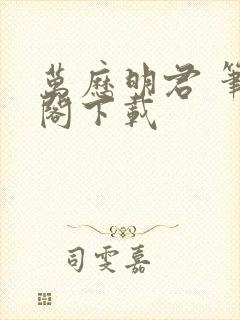 萬歷明君 筆
閣下載
司雯嘉